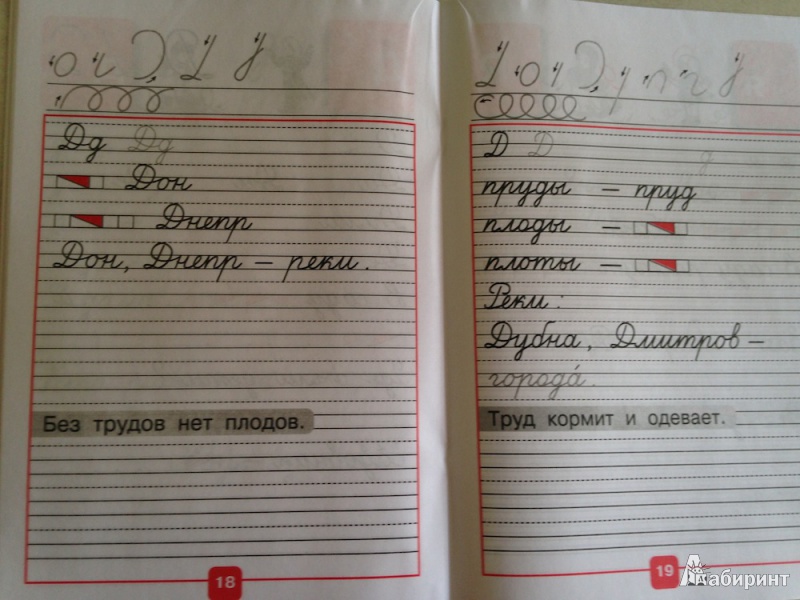 Дд Дд
Дон
Днепр
Дон, Днепр – реки.
Без трудов нет плодов.
18
Д Д д
пруды – пруд
плоды –
плоты –
Реки:
Дубна, Дмитров –
города́.
Труд кормит и одевает.
19
Лабиринт